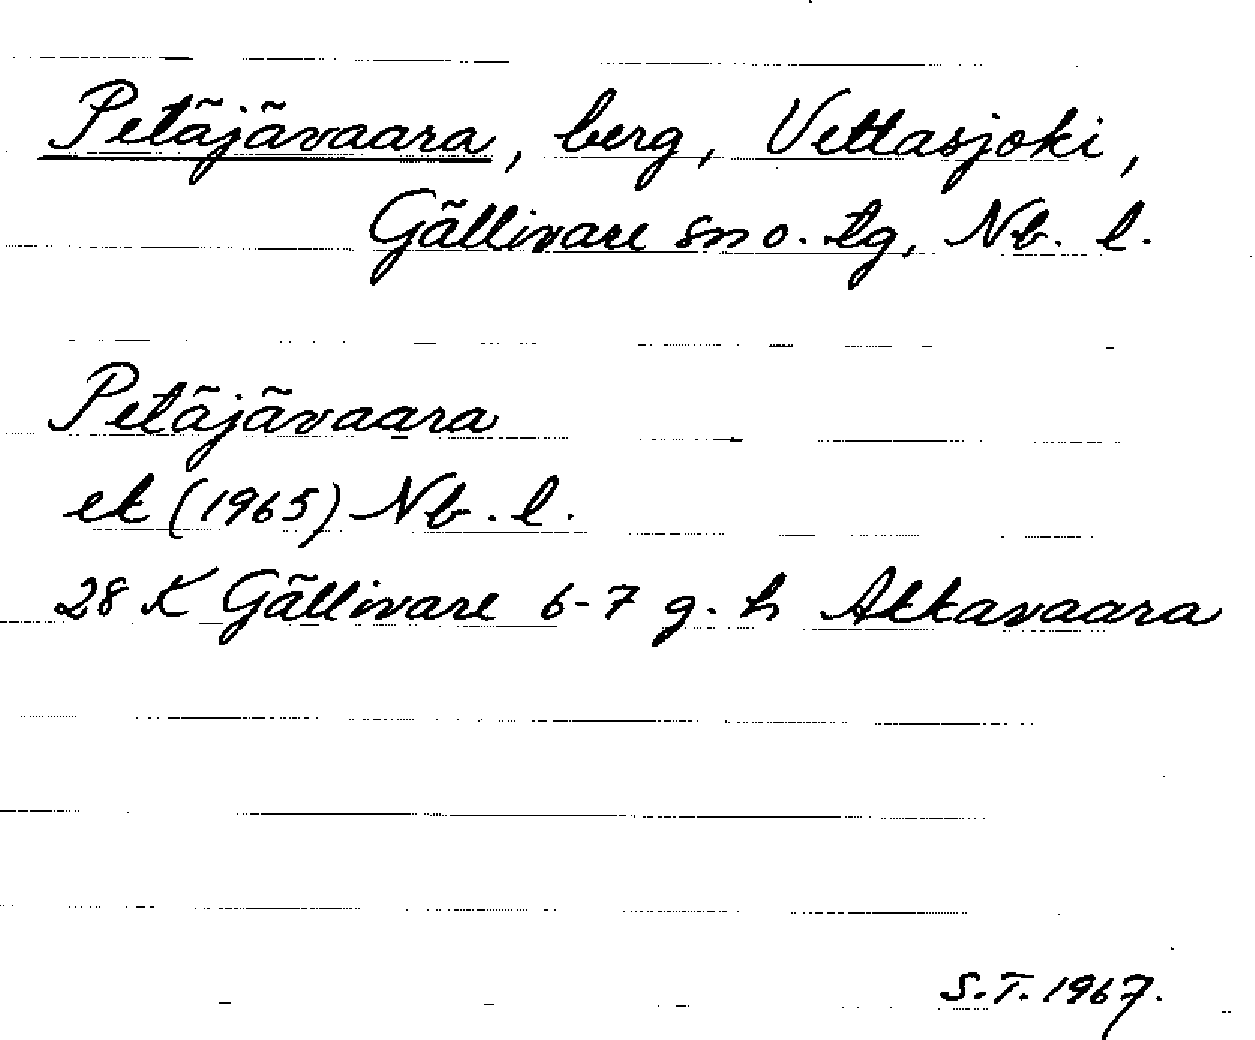 Petäjävaara, berg, Vettasjoki,
Gällivare sn o. tg, Nb. l.
Petäjävaara
ek (1965) Nb. l.
28 K Gällivare 6-7 g-h Akkavaara
S.T. 1967.